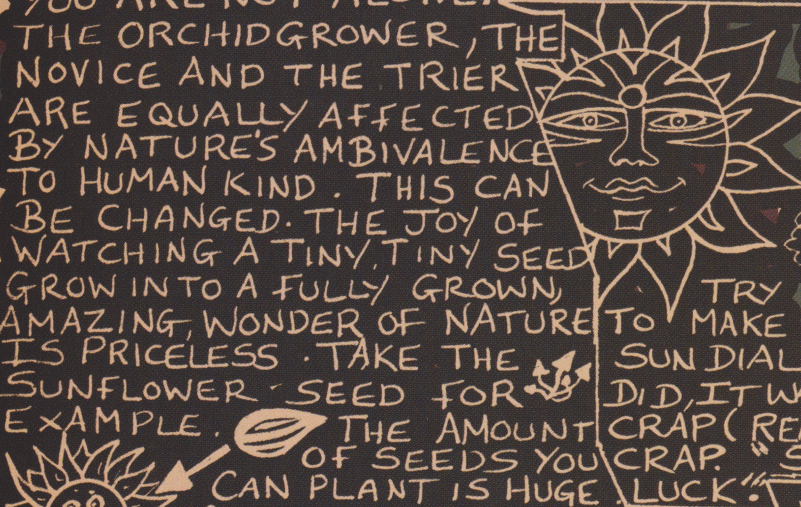 YOU ARE NOT ALONE.
THE ORCHIDGROWER, THE
NOVICE AND THE TRIER
ARE EQUALLY AFFECTED
BY NATURE'S AMBIVALENCE
TO HUMAN KIND. THIS CAN
BE CHANGED. THE JOY OF
WATCHING A TINY, TINY SEED
GROW INTO A FULLY GROWN,
AMAZING, WONDER OF NATURE
IS PRICELESS. TAKE THE
SUNFLOWER SEED FOR
EXAMPLE.
THE AMOUNT
OF SEEDS YOU
CAN PLANT IS HUGE.
TRY
TO MAKE
SUN DIAL
DID, IT W
CRAP (RE
CRAP. "S
LUCK".